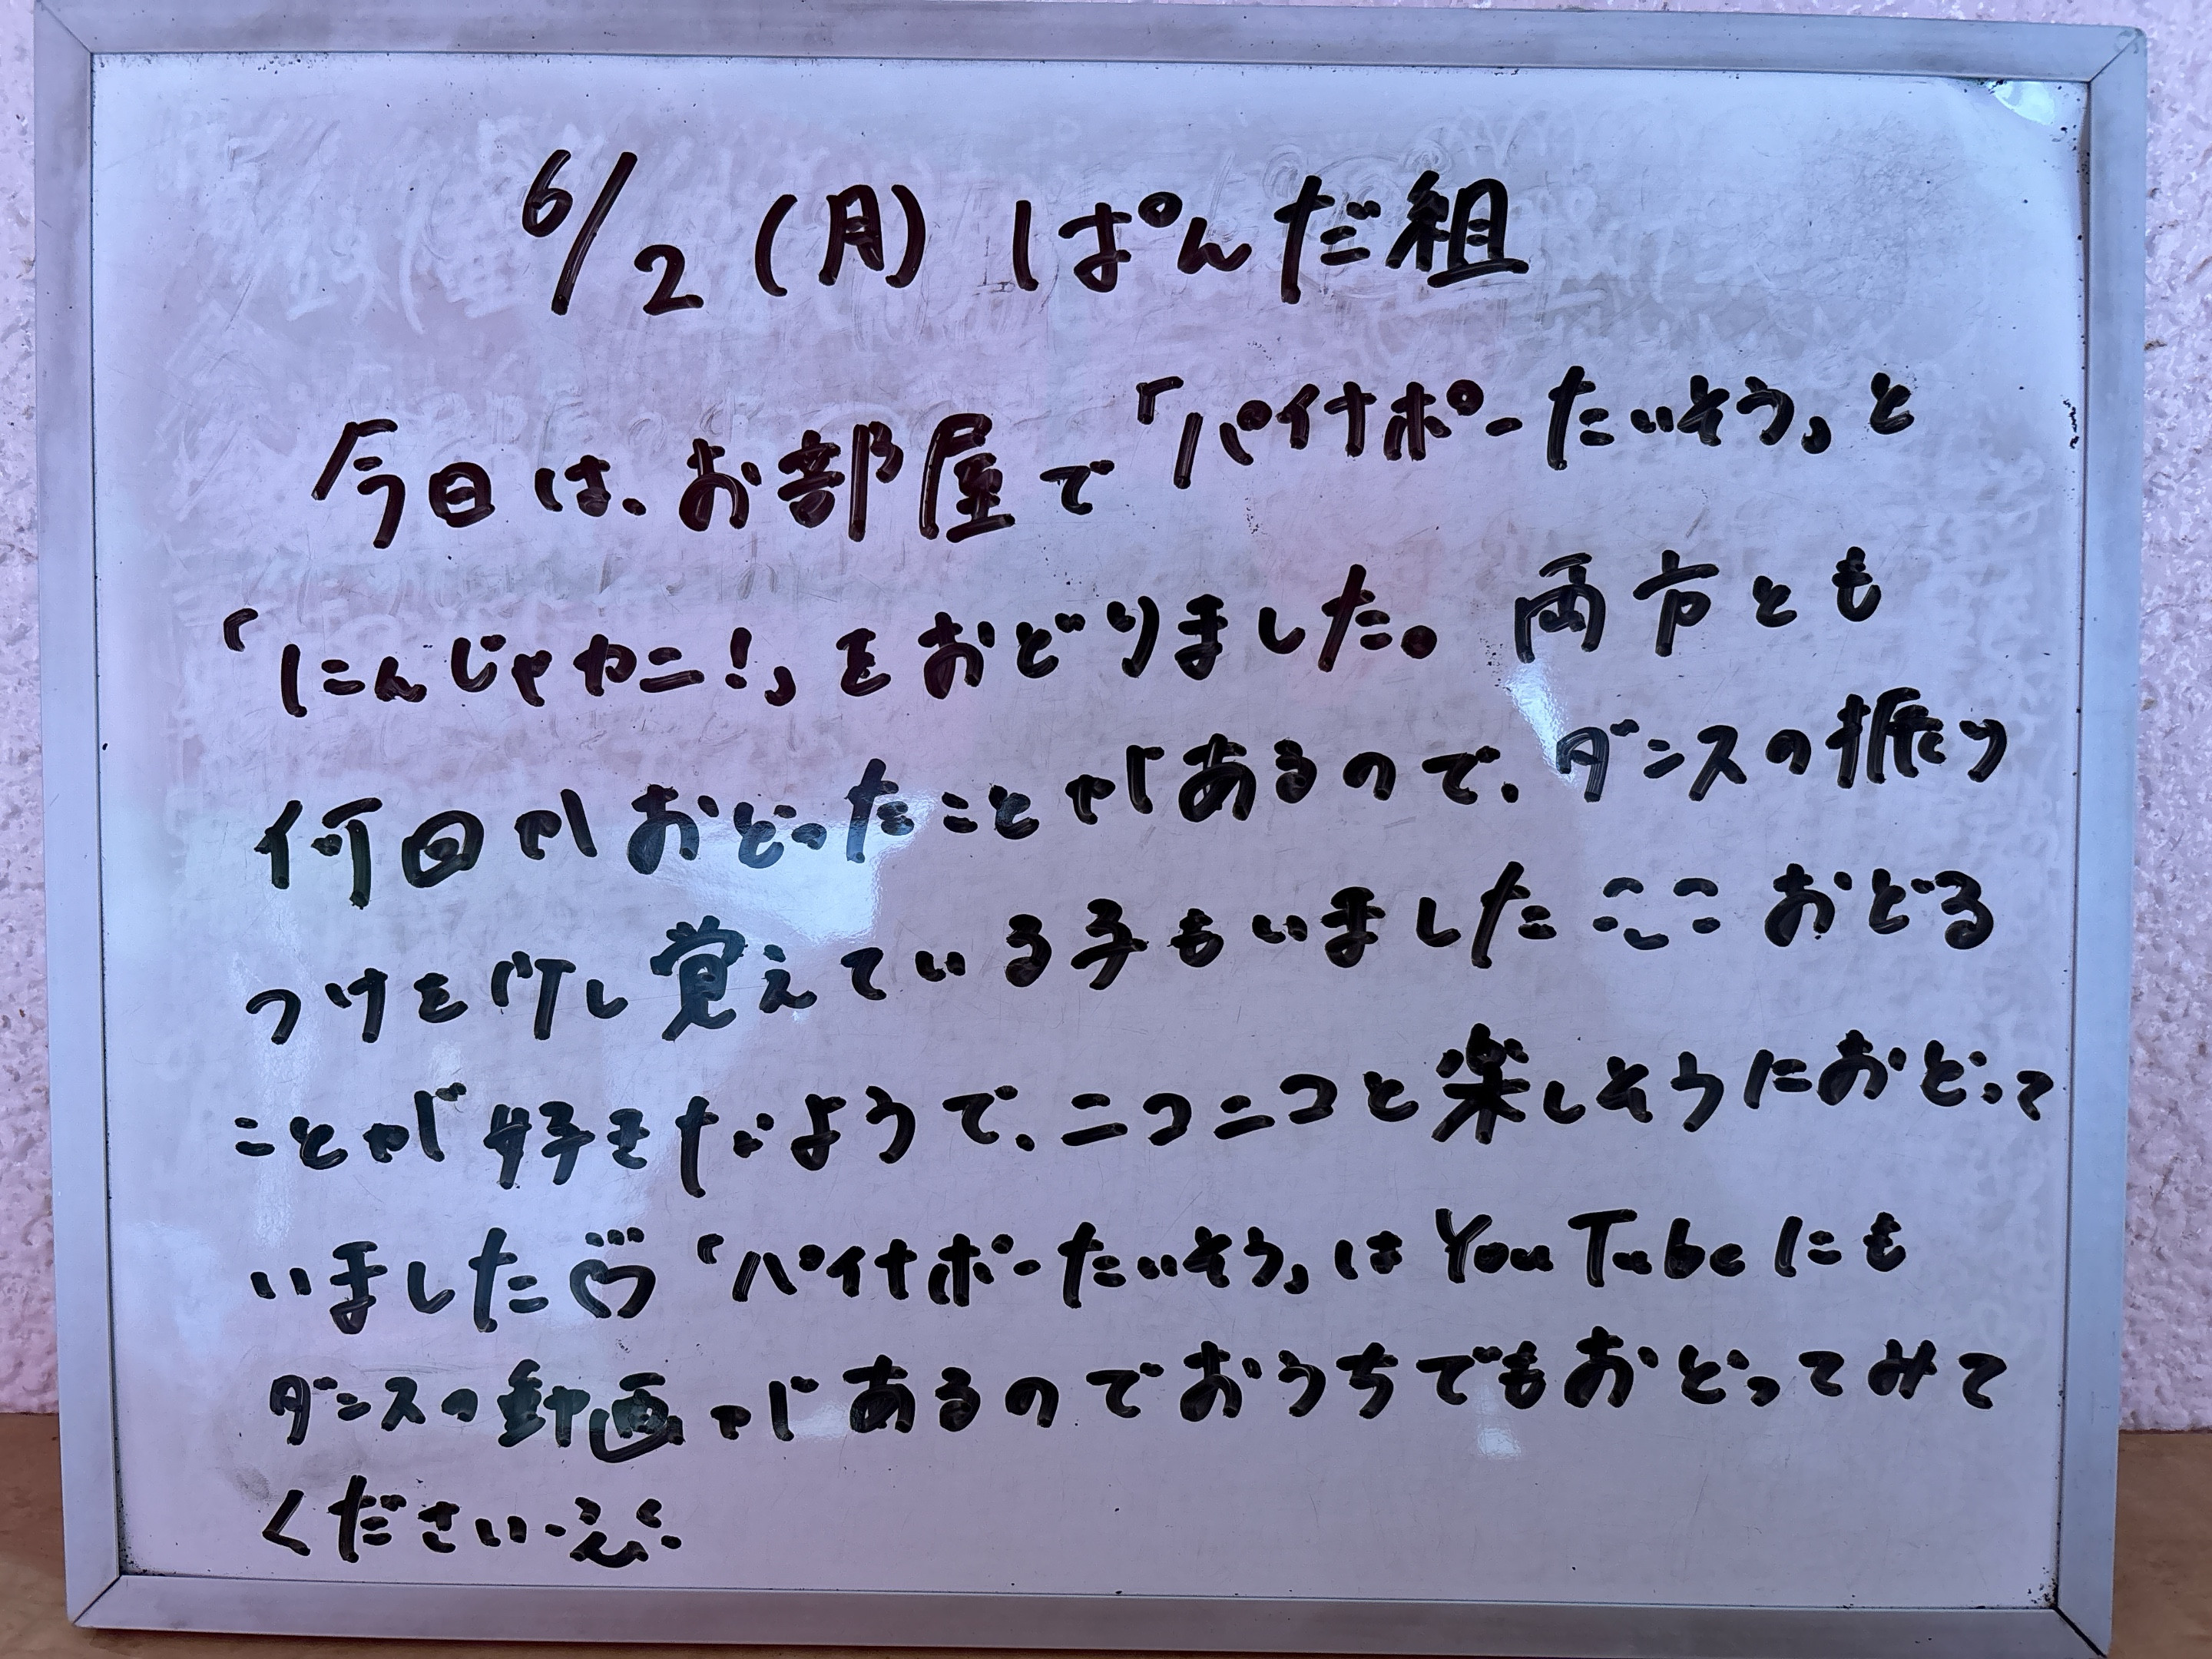 6/2(月) ぱんだ組
今日は、お部屋で「パイナポーたいそう」と
「にんじゃカニ!」をおどりました。両方とも
何回かおどったことがあるので、ダンスの振り
つけを少し覚えている子もいました おどる
ことが好きなようで、ニコニコと楽しそうにおどって
いました♡「パイナポーたいそう」はYouTubeにも
ダンスの動画があるのでおうちでもおどってみて
ください